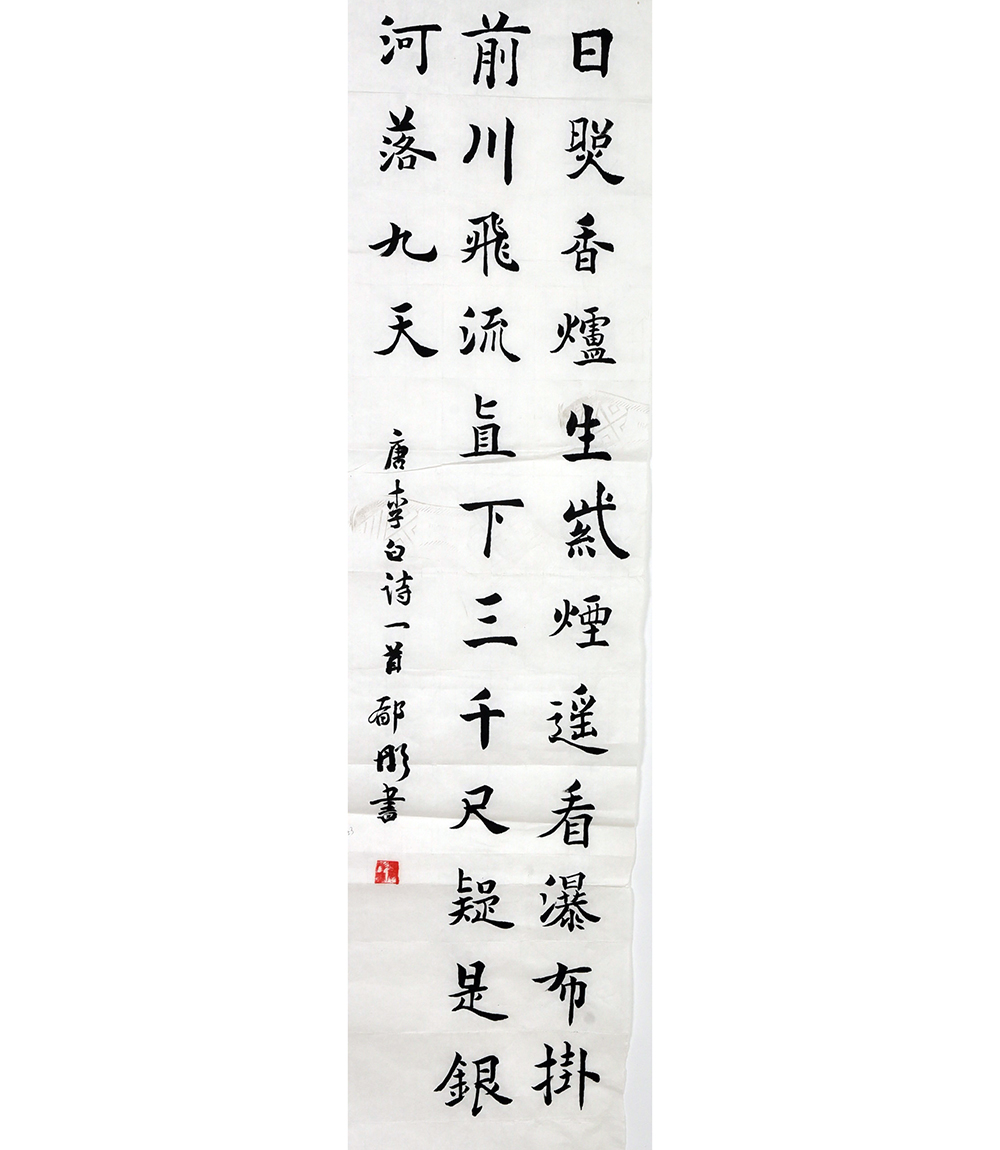 日照香爐生紫煙遥看瀑布掛
前川飛流直下三千尺疑是銀
河落九天
唐李白诗一首郗彤書